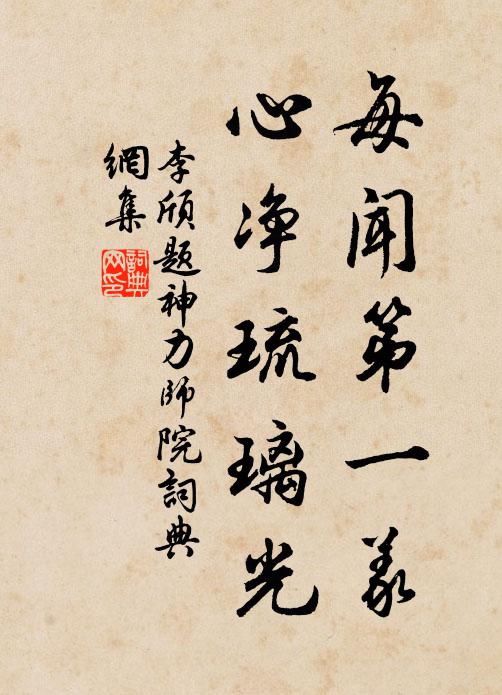 每闻第一义
心净琉璃光
李颀题神力师院词典
網集
詞典
网印